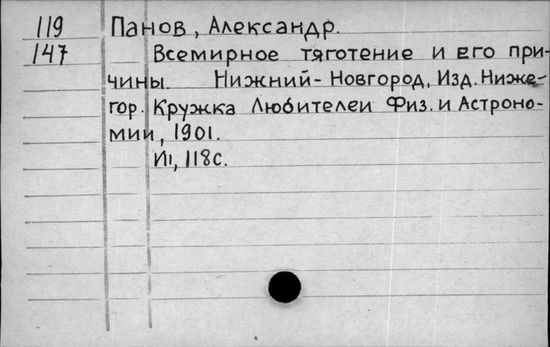 119 Панов, Александр.
147 Всемирное тяготение и его при-
чины. Нижний-Новгород, Изд. Ниже-
гор. Кружка Любителей Физ. и Астроно-
мии, 1901.
118с.